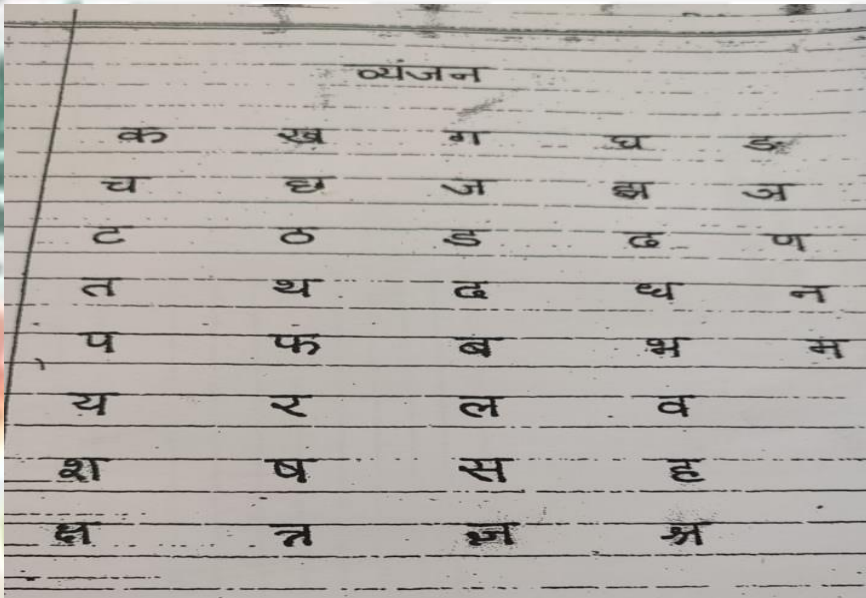 व्यंजन
क ख ग घ ङ
च छ ज झ ञ
ट ठ ड ढ ण
त थ द ध न
प फ ब भ म
य र ल व
श ष स ह
क्ष त्र ज्ञ श्र